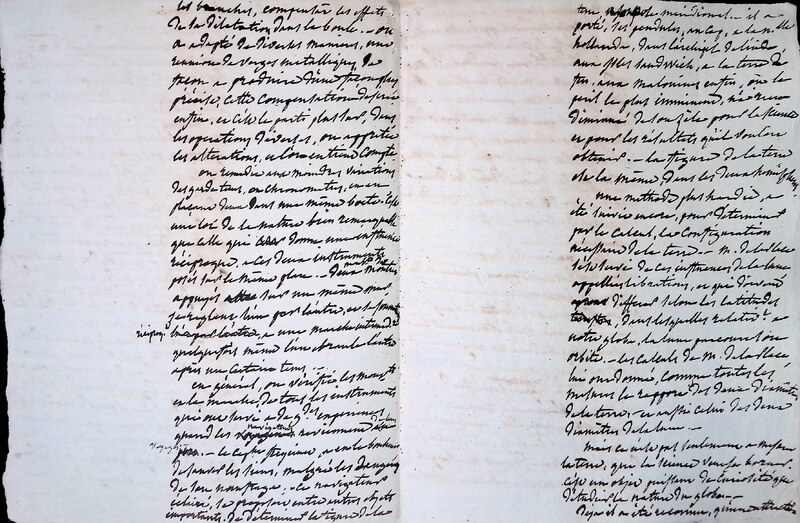 les branches, compenser les effets
de la dilatation dans la boule. — on
a adapté de diverses manieres, une
reunion de verges metalliques, de
façon a produire d'une façon plus
précise, cette compensation desirée
enfin, et c'est le parti plus sur, dans
les operations diverses, on apprecie
les alterations, et l'on en tient compte
on remedie aux moindres variations
des gardetems, ou chronometres, en en
plaçant deux dans une même boete. c'est
une loi de la nature bien remarquable
que celle qui donne une influence
réciproque, a ces deux instruments
posés sur le même plan. — deux montres
appuyés sur un même mur
se reglent l'une par l'autre, et
récipr.
quelquefois même l'une l'autre
après un certain tems. —
en général, on vérifie les
et la marche, de tous les instruments
qui ont servi a de gdes experiences,
quand les navigateurs reviennent
voyageurs
— le capne freycinet, a eu le bonheur
de sauver les siens, malgré les dangers
de son naufrage. — ce navigateur
célèbre, se proposoit entre autres objets
importants, de determiner la figure de la
terre pole méridional. — il a
porté, ses pendules, au cap, a la nlle
hollande, dans l'archipel de l'inde,
aux isles sandwich, a la terre de
feu, aux malouines enfin, où le
peril le plus imminent, n'a rien
diminué de son zèle pour la science
et pour les résultats qu'il vouloit
obtenir. — la figure de la terre
est la même dans les deux hémispheres
une methode plus hardie, a
été suivie encore, pour determiner
par le calcul, la configuration
necessaire de la terre — M. de la place
s'est servi de ces influences de la lune
appellées librations, et qui doivent
differer selon les latitudes
dans lesquelles relatt. a
notre globe, la lune parcourt son
orbite. — les calculs de M. de la place
lui ont donné, comme toutes les
mesures le rapport des deux diamètres
de la terre. — et aussi celui des deux
diamètres de la lune. —
mais ce n'est pas seulement a mesurer
la terre, que la science veut se borner.
c'est un objet puissant de curiosité que
d'étudier la nature du globe. —
Déja il a été reconnu, qu'une attraction